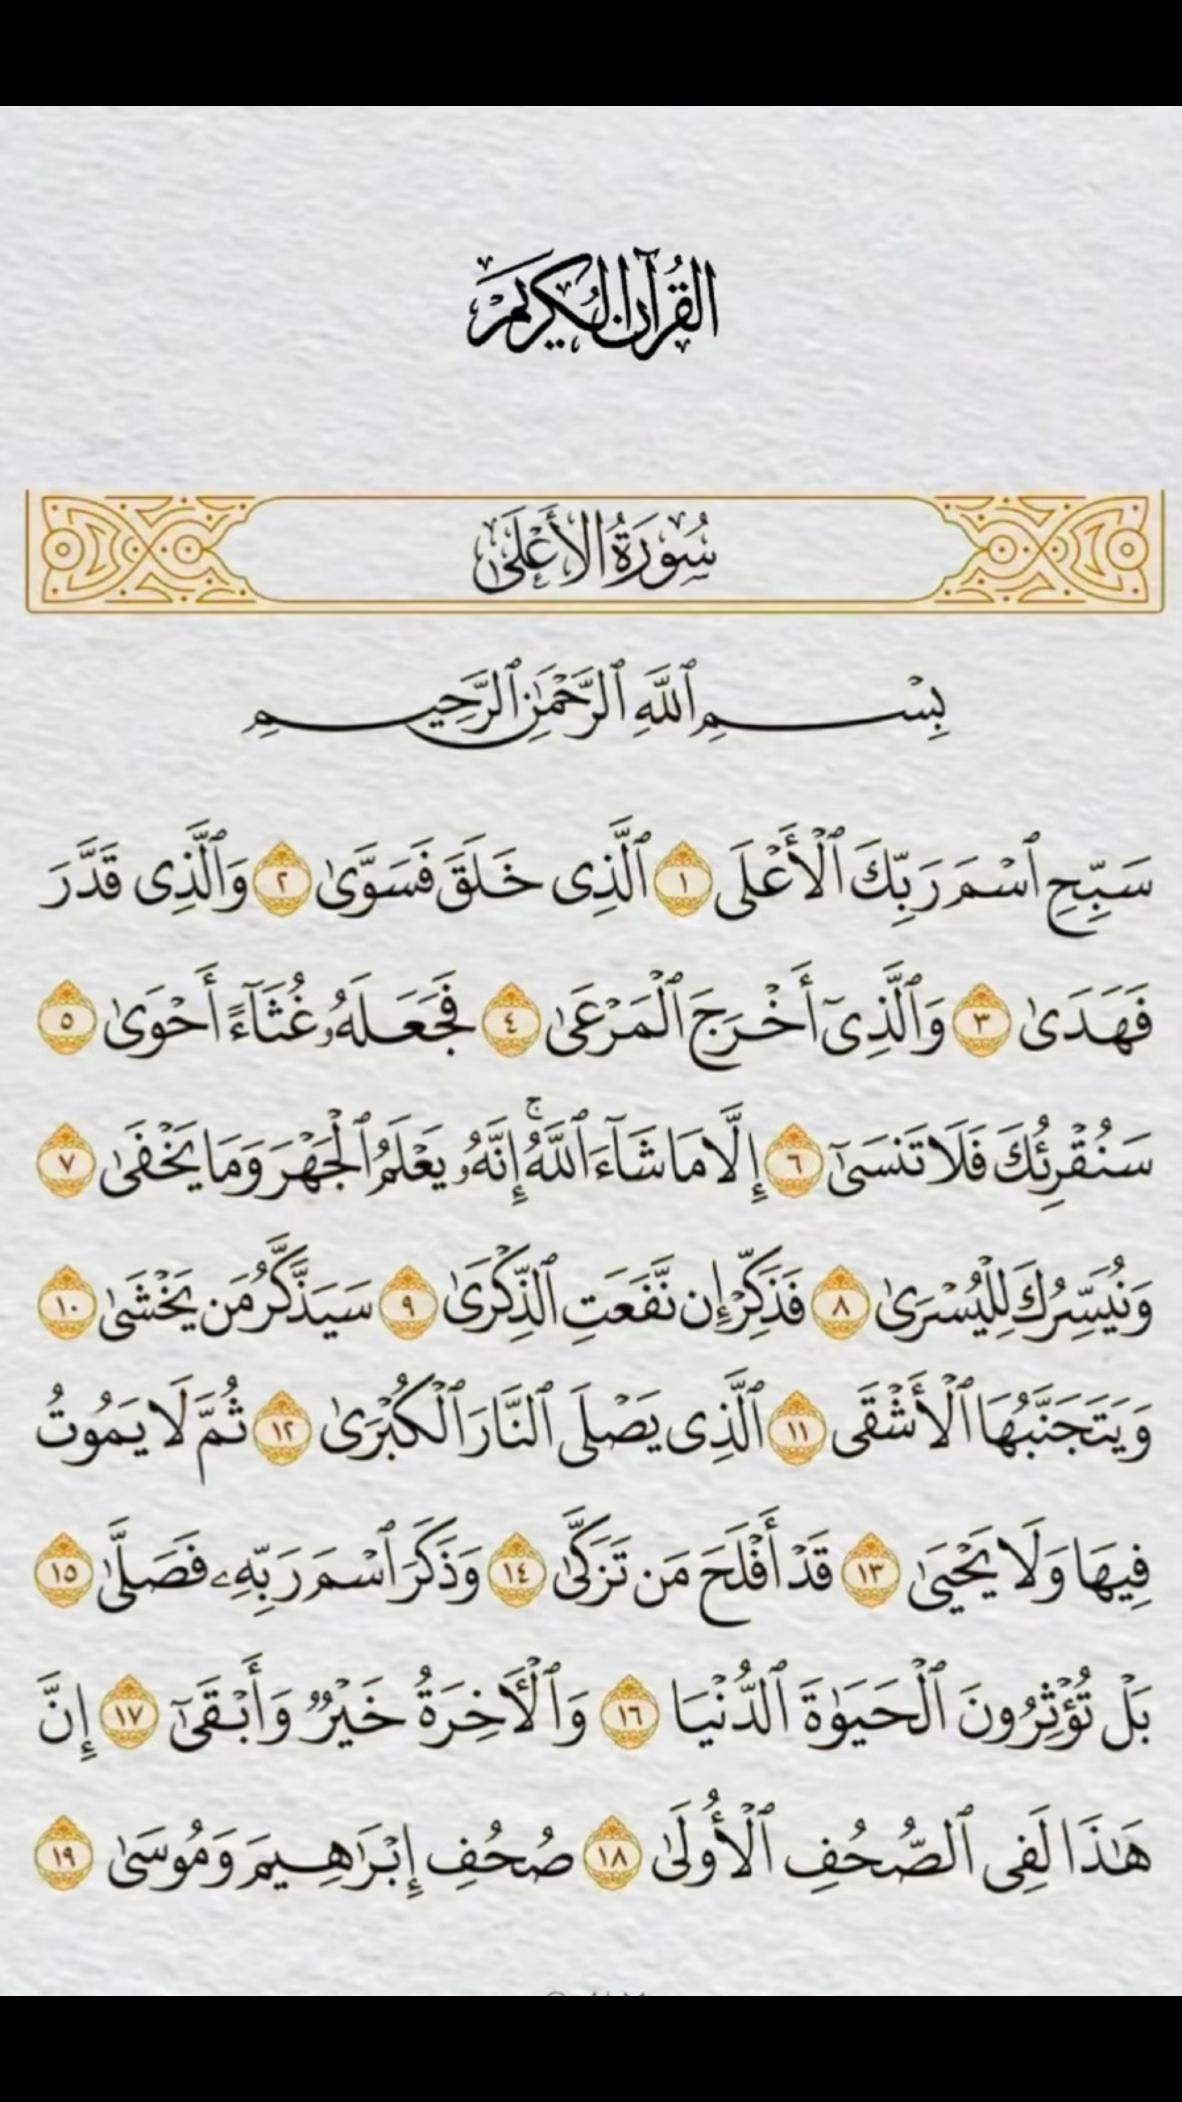 القُرآن الكَريم
سُورَةُ الأَعْلَىٰ
بِسْمِ ٱللَّهِ ٱلرَّحْمَٰنِ ٱلرَّحِيمِ
سَبِّحِ ٱسْمَ رَبِّكَ ٱلْأَعْلَى ١ ٱلَّذِى خَلَقَ فَسَوَّىٰ ٢ وَٱلَّذِى قَدَّرَ
فَهَدَىٰ ٣ وَٱلَّذِىٓ أَخْرَجَ ٱلْمَرْعَىٰ ٤ فَجَعَلَهُۥ غُثَآءً أَحْوَىٰ ٥
سَنُقْرِئُكَ فَلَا تَنسَىٰٓ ٦ إِلَّا مَا شَآءَ ٱللَّهُ ۚ إِنَّهُۥ يَعْلَمُ ٱلْجَهْرَ وَمَا يَخْفَىٰ ٧
وَنُيَسِّرُكَ لِلْيُسْرَىٰ ٨ فَذَكِّرْ إِن نَّفَعَتِ ٱلذِّكْرَىٰ ٩ سَيَذَّكَّرُ مَن يَخْشَىٰ ١٠
وَيَتَجَنَّبُهَا ٱلْأَشْقَى ١١ ٱلَّذِى يَصْلَى ٱلنَّارَ ٱلْكُبْرَىٰ ١٢ ثُمَّ لَا يَمُوتُ
فِيهَا وَلَا يَحْيَىٰ ١٣ قَدْ أَفْلَحَ مَن تَزَكَّىٰ ١٤ وَذَكَرَ ٱسْمَ رَبِّهِۦ فَصَلَّىٰ ١٥
بَلْ تُؤْثِرُونَ ٱلْحَيَوٰةَ ٱلدُّنْيَا ١٦ وَٱلْـَٔاخِرَةُ خَيْرٌ وَأَبْقَىٰٓ ١٧ إِنَّ
هَٰذَا لَفِى ٱلصُّحُفِ ٱلْأُولَىٰ ١٨ صُحُفِ إِبْرَٰهِيمَ وَمُوسَىٰ ١٩